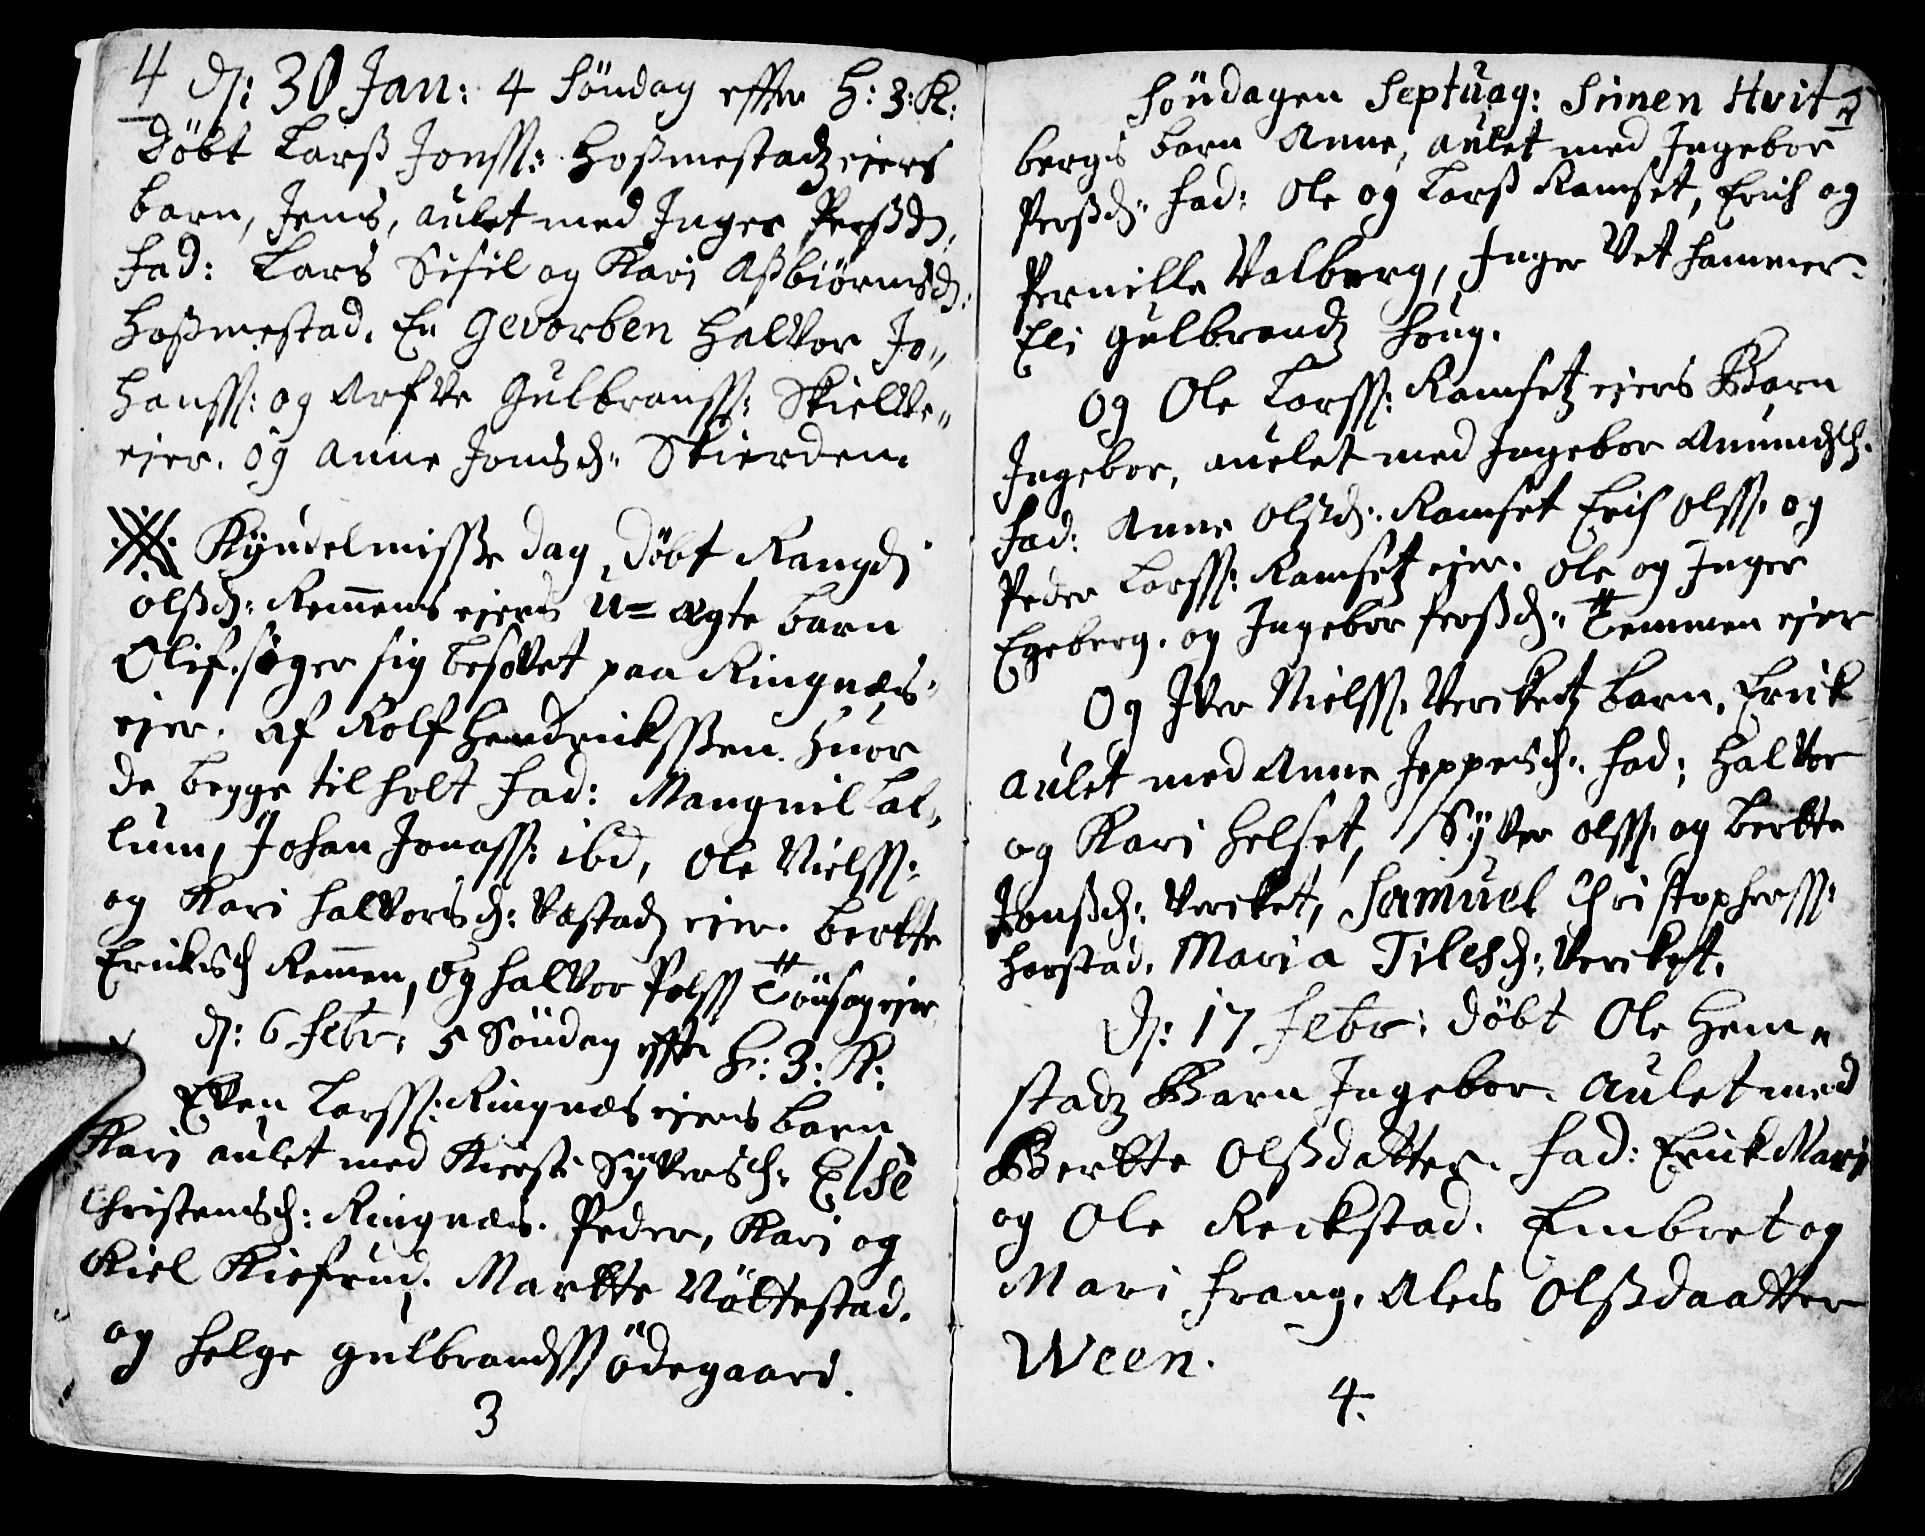 4 dj: 30 Jan: 4 Söndag effter H: 3: K:
Döbt Larß Jonss: Hoßmestadz ejers
barn, Jens, aulet med Inger Perßd,
Fad: Lars Sisil og Kari Aßbiörnsd:
Hoßmestad. En Gevorben Halvor Jo„
hanss: og Arfve Gulbranss: Skielve„
ejer. og Anne Jonsd: Skierden.
Kyndelmisse dag, Döbt Rangdj
Olßd: Remmens ejers U=ægte barn
Olif. siger sig besovet paa Ringnæs„
ejer. af Rolf Hendrickssen. Huor
de begge til holt Fad: Mangnil Lal„
lum, Johan Jonass: ibd, Ole Nielss:
og Kari Halvorsd: Vestad ejer. Berthe
Ericksd Remmen, og Halvor Polss Töüsag ejer
dj: 6 Febr: 5 Söndag effter H: 3: K:
Even Larss: Ringnæs ejers barn
Kari aulet med Kiersti Syversd: Else
Christensd: Ringnæs. Peder, Kari og
Kiel Kiesrud. Marthe Nöttestad.
og Helge Gulbrandss Ödegaard.
3
Söndagen Septuag: Simen Hvit
bergs barn Anne, aulet med Ingebor
Perßd: Fad: Ole og Larß Ramset, Erich og
Pernille Valberg, Inger Vethammer.
Eli Gulbrandz Houg.
Og Ole Larss: Ramsetz ejers Barn
Ingebor, auelet med Ingebor Amundsd.
Fad: Anne Olsd: Ramset Erich Olss. og
Peder Larss: Ramsetz ejer. Ole og Inger
Egeberg. og Ingebor Perßd: Temmen ejer
Og Iver Nielss. Verketz barn, Erick
aulet med Anne Jeppesd: Fad: Halvor
og Kari Helset, Syver Olss. og Berthe
Jonßd: Verket, Samuel Christopherss:
Horstad. Maria Tilesd: Verket.
Dj: 17 Febr: döbt Ole Hem„
stadz Barn Ingebor. Aulet med
Berthe Olßdatter. Fad: Erick Mari
og Ole Reckstad. Embret og
Mari Frang. Aleis Olßdaatter
Ween.
4.